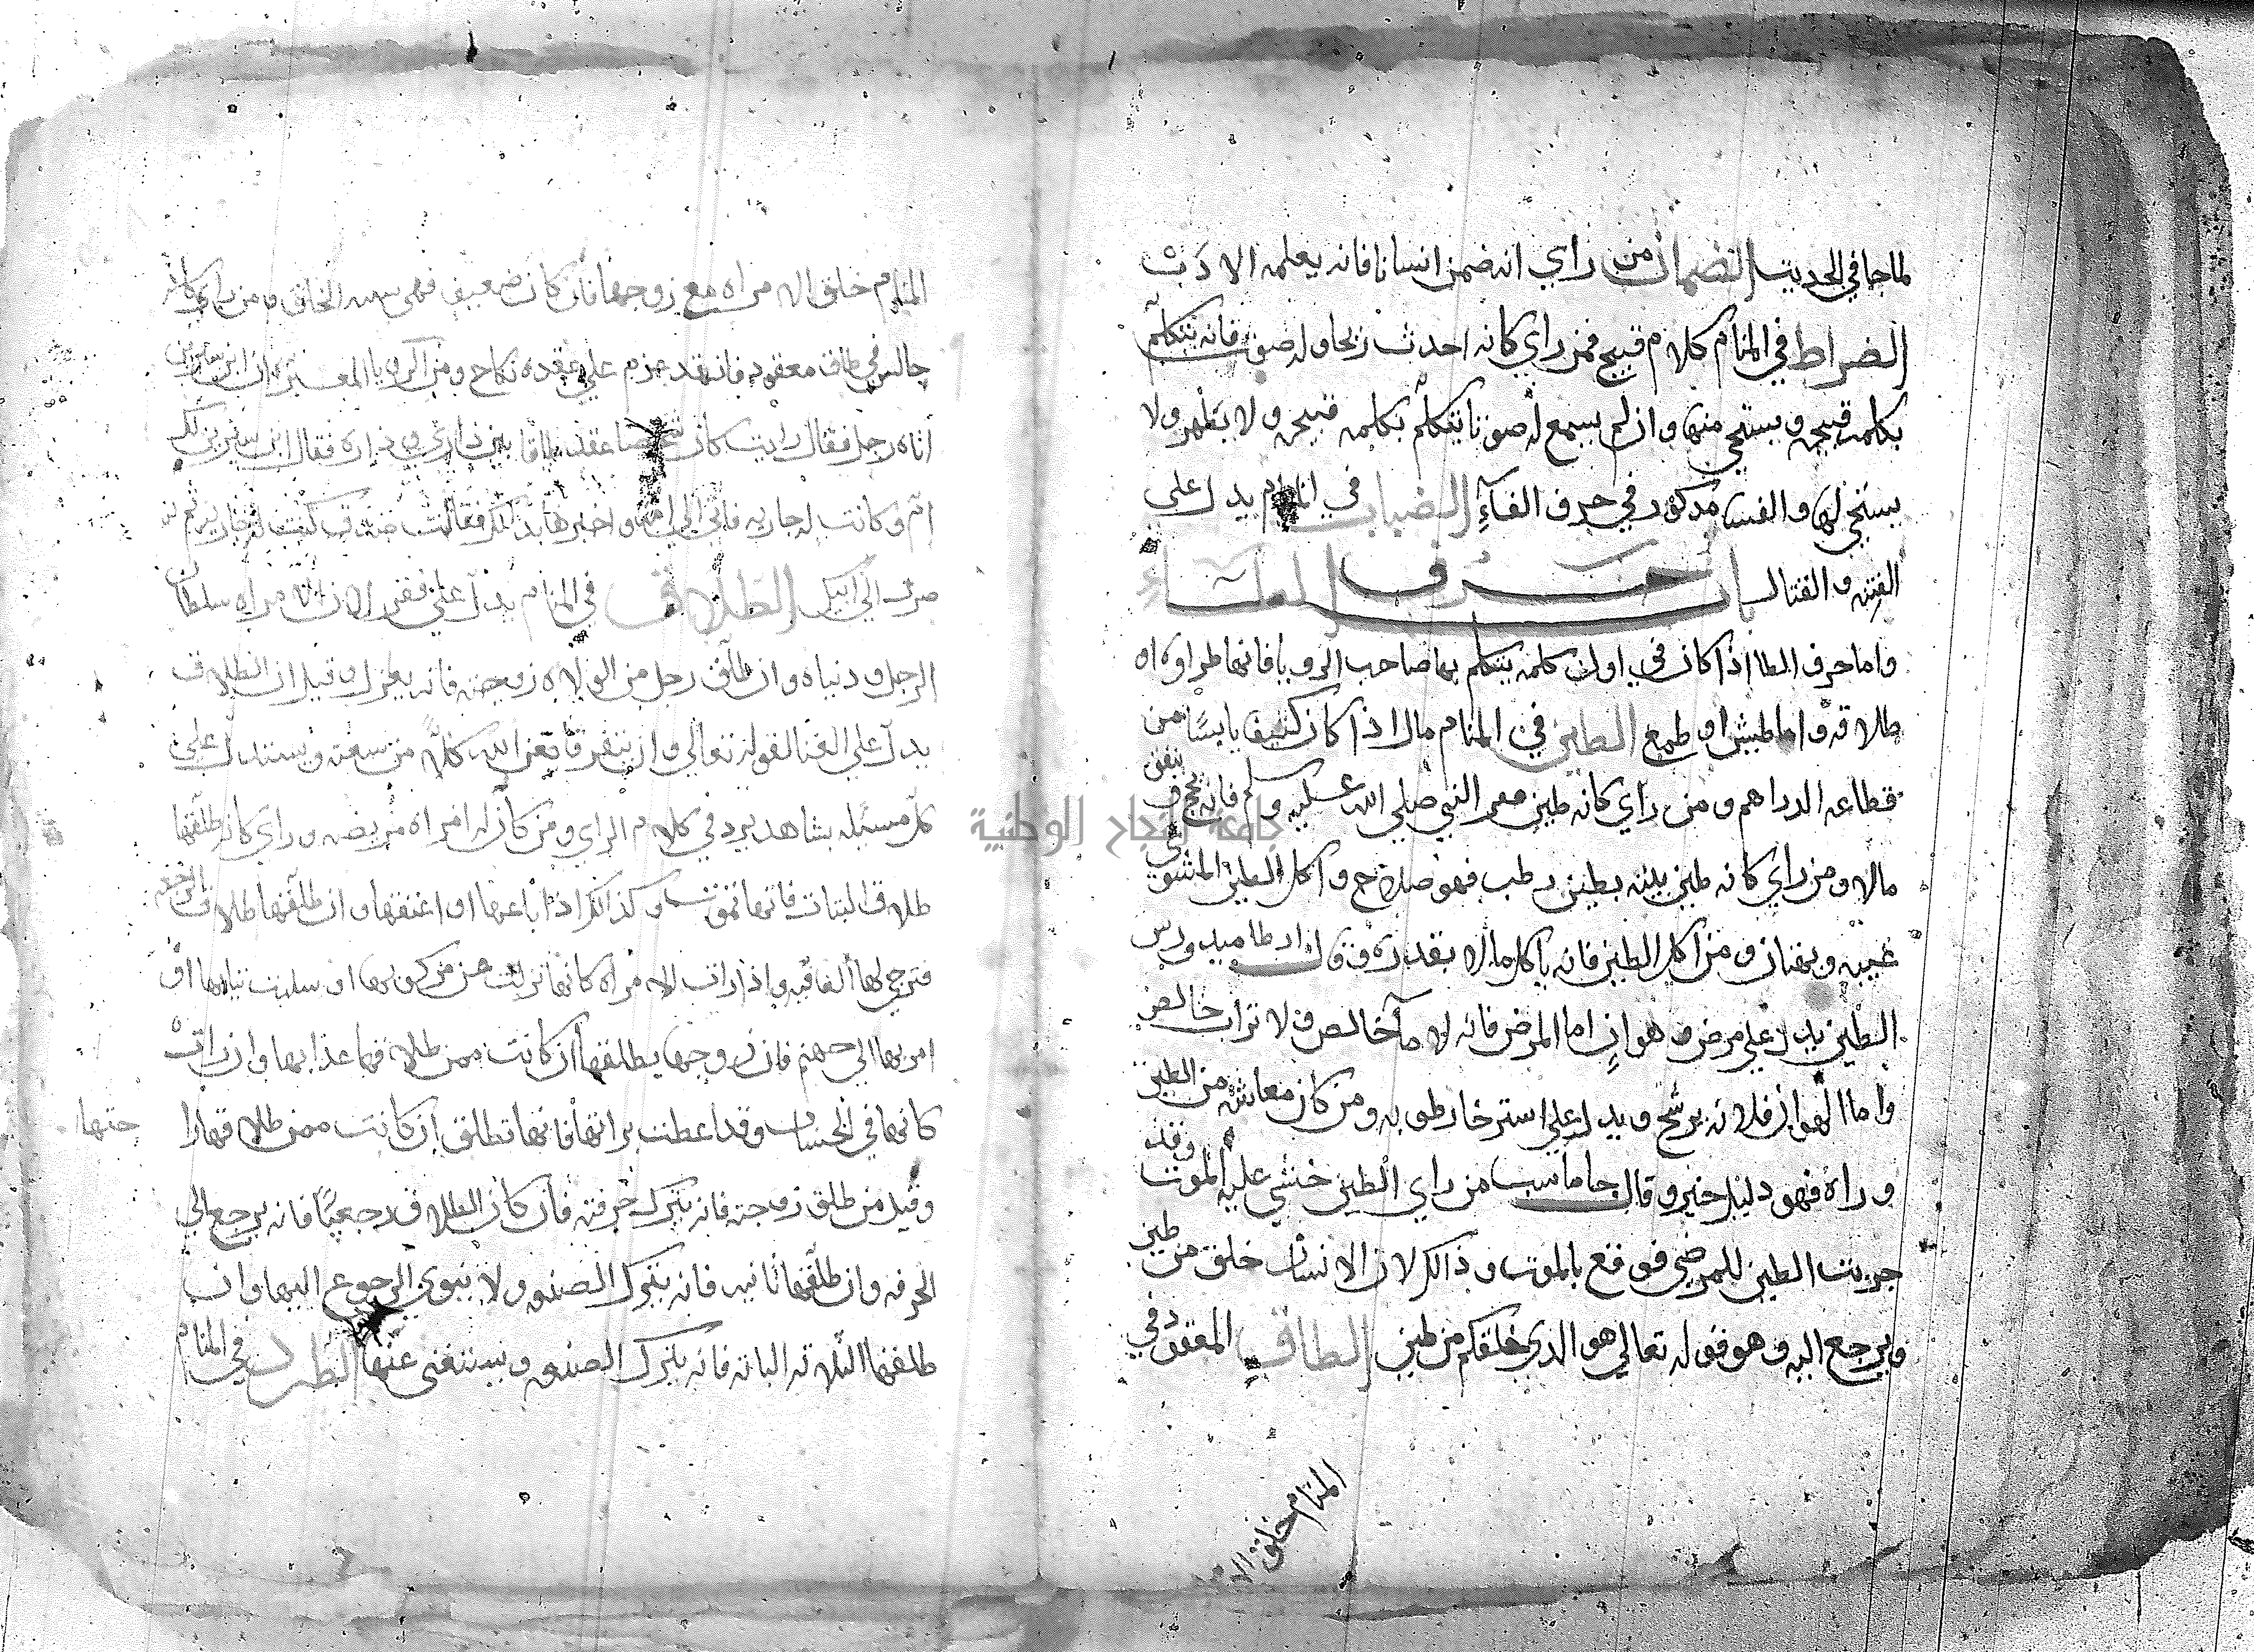 لما جا في الحديت الضمان من راي انه ضمن انسانا فانه يعلمه الادب
الضراط في المنام كلام قبيح فمن راي كانه احدث ريحا وله صوت فانه يتكلم
بكلمه قبيحه ويستحي منها وان لم يسمع له صوتا يتكلم بكلمه قبيحه ولا يظهر ولا
يستحي لها والفسا مدكور في حرف الفآء الضباب في المنام يدل على
الفتنه والقتال باب حرف الطاء
واما حرف الطا اذا كان في اول كلمه يتكلم بها صاحب الرويا فانها طراوه او
طلاقه واما طيش او طمع الطين في المنام مال اذا كان كتيف يابسًا من
قطاعه الدراهم ومن راي كانه طين معبر النبي صلي الله عليه وسلم فانه يحج وينفق
مالا ومن راي كانه طين بيته بطين رطب فهو صلاح واكل الطين المشوي
غيبه وبهتان ومن اكل الطين فانه ياكل مالا بقدره وقال ارطاميدورس
الطين يدل علي مرض وهوان اما المرض فانه لا مآ خالص ولا تراب خالص
واما الهوان فلانه يرشح ويدل علي استرخا رطوبه ومن كان معاشه من الطين
وراه فهو دليل خير وقال جاماسب من راي الطين خشي عليه الموت وقد
جربت الطين للمرضي فوقع بالموت وذالك لان الانسان خلق من طين
ويرجع اليه وهو قوله تعالي هو الدي خلقكم من طين الطاق المعقود في
المنام خلق الا
المنام خلق الامراه مع زوجها فان كان ضعيف فهي سيه الخلق ومن راي كانه
جالس في طاق معقود فانه قد عزم علي عقده نكاح ومن الرويا المعبره ان ابن سيرين
اتاه رجل فقال رايت كان عقد طاقا بين داري وداره فقال ابن سيرين لك
ام وكانت له جاريه فاتي الي امه واخبرها بذلك فقالت صدق كنت جاريه ثم
صرت الي ابيك الطلاق في المنام يدل علي فقر لان المراه سلطان
الرجل ودنياه وان طلق رجل من الولاه زوجته فانه يعزل وقيل ان الطلاق
يدل علي الغنا لقوله تعالي وان يتفرقا يغن الله كلًا من سعته ويستدل علي
كل مسئله بشاهد يرد في كلام الراي ومن كان له امراه مريضه وراي كانه طلقها
طلاق البتات فانها تموت وكذالك اذا باعها او اعتقها وان طلقها طلاق الرجعه
فترجي لها العافيه واذا رات الامراه كانها نزلت عن مركوبها او سلبت ثيابها او
امر بها الي جهنم فان زوجها يطلقها ان كانت ممن طلاقها عذابها وان رات
كانها في الحساب وقد اعطت براتها فانها تطلق ان كانت ممن طلاقها را
حتها
وقيل من طلق زوجته فانه يترك حرفته فان كان الطلاق رجعيًا فانه يرجع الي
الحرفه وان طلقها ثانيه فانه يترك الصنعه ولا ينوي الرجوع اليها وان
طلقها الثلاثه الباته فانه يترك الصنعه ويستغني عنها الطبل في المنام
جامعة النجاح الوطنية